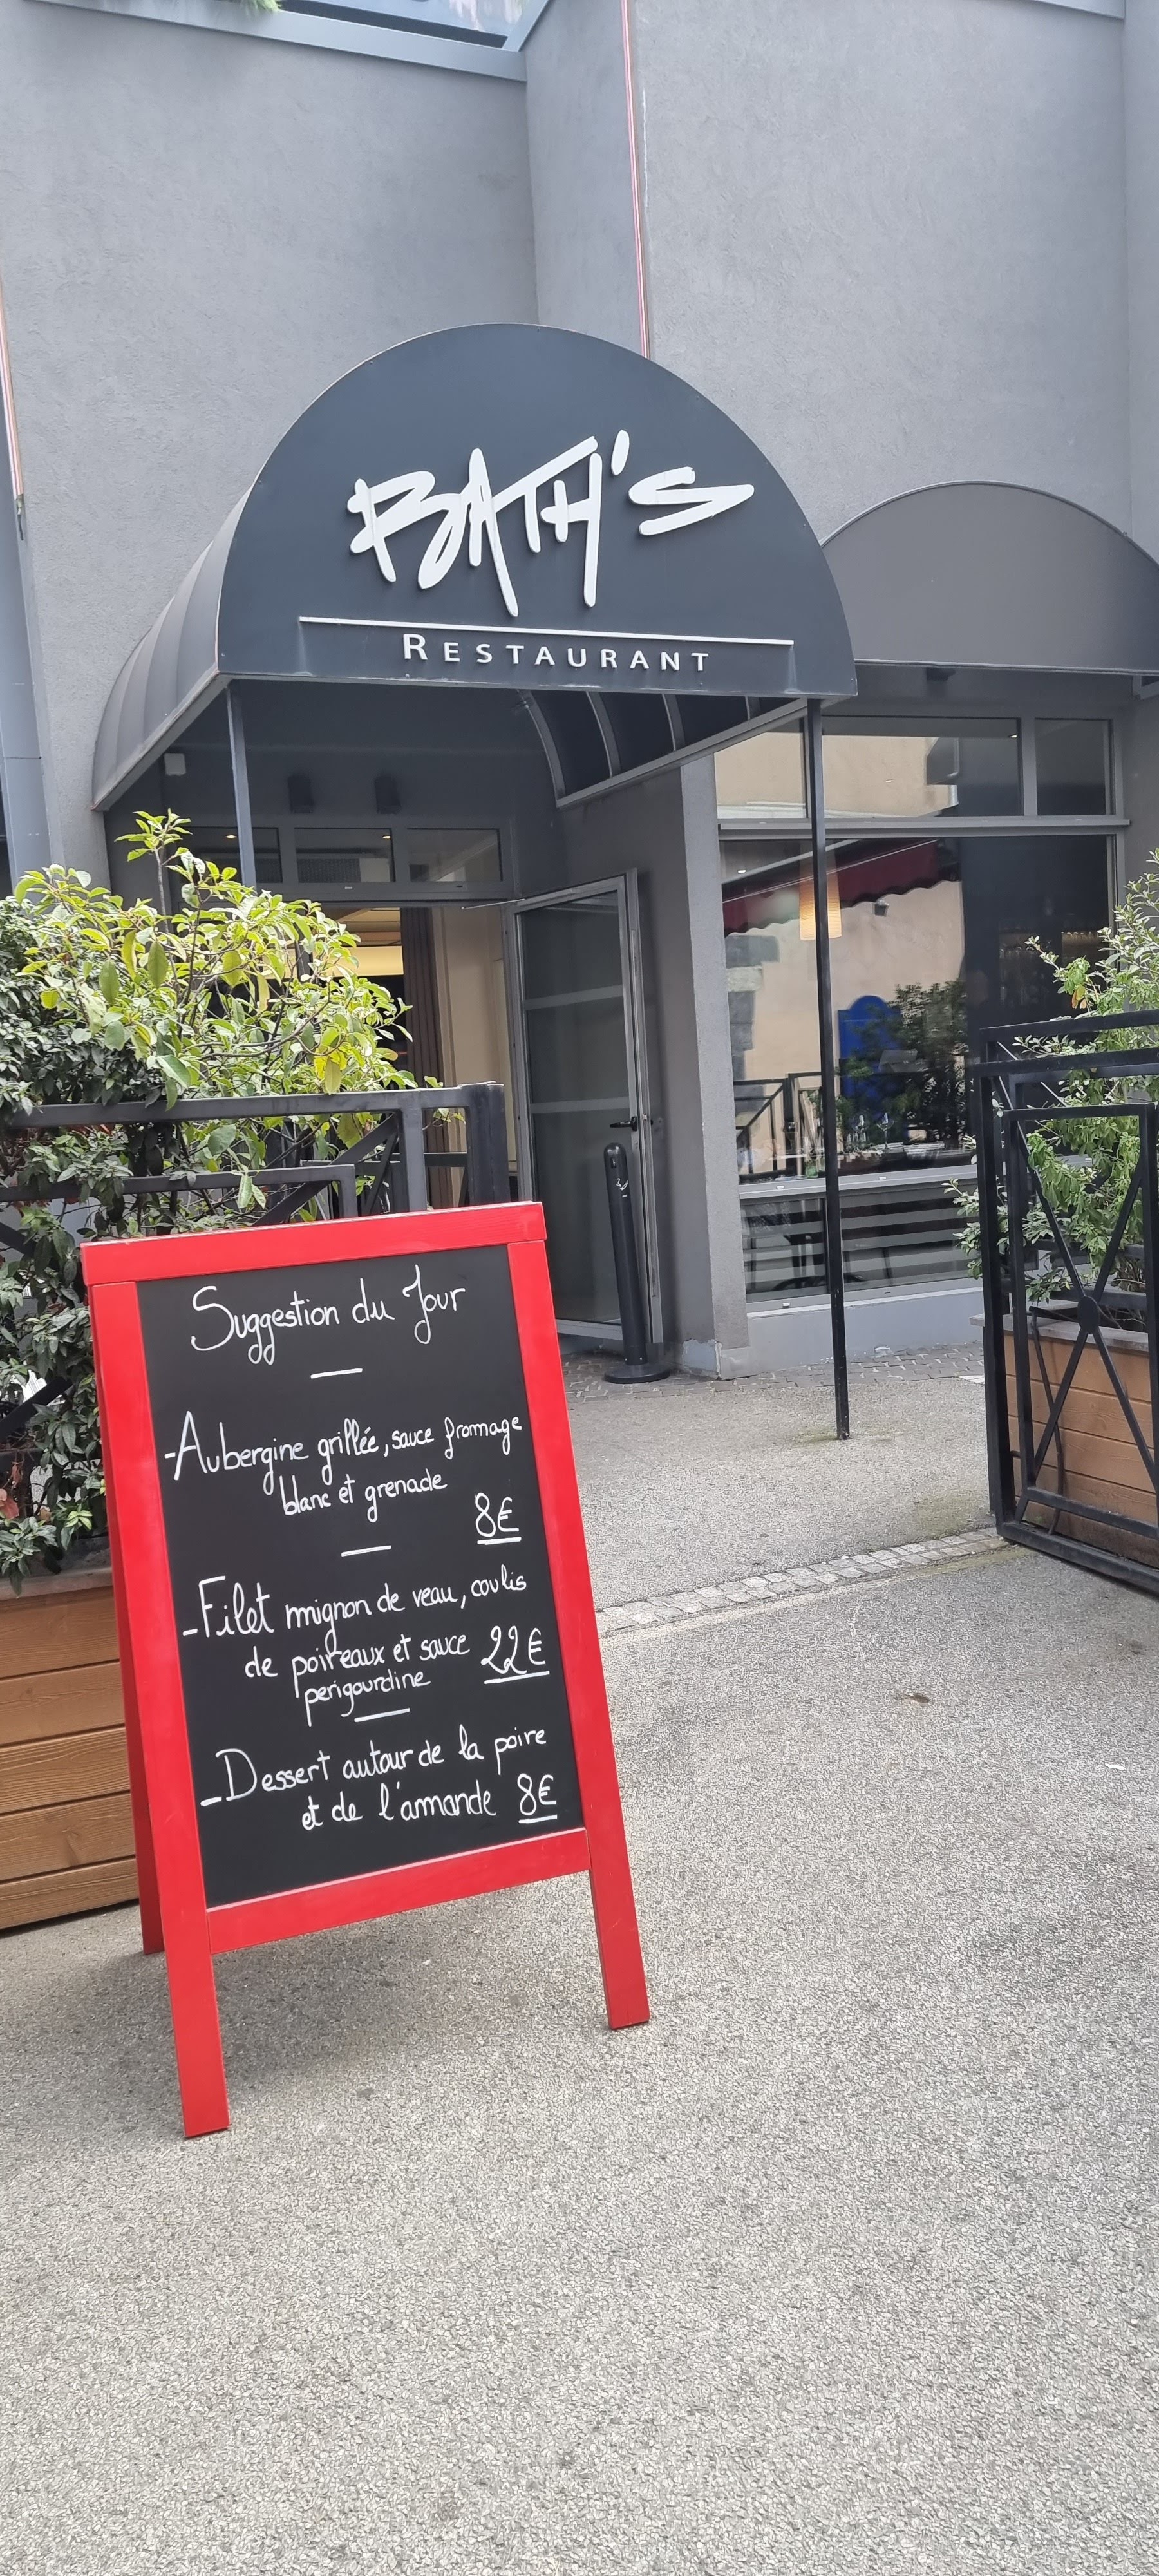 BATH'S
RESTAURANT
Suggestion du Jour
- Aubergine grillée, sauce fromage
blanc et grenade
8€
- Filet mignon de veau, coulis
de poireaux et sauce 22€
perigourdine
- Dessert autour de la poire
et de l'amande 8€